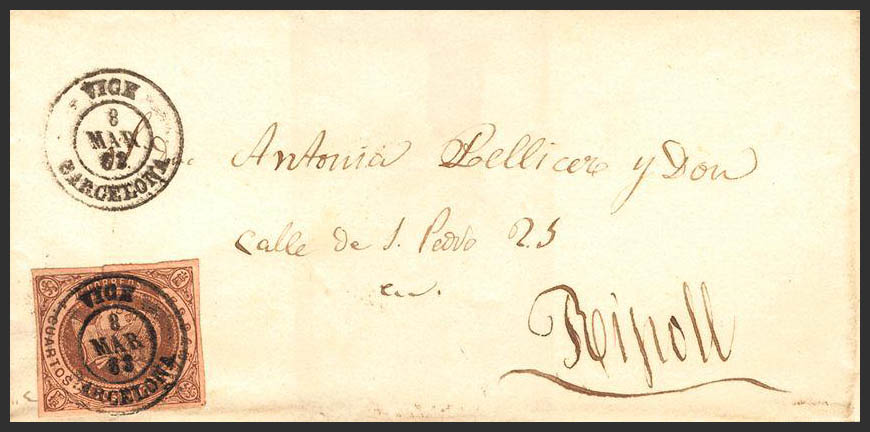 VICH
8
MAR
63
BARCELONA
Antonia Pellicer y Don
Calle de S. Pedro 25
en
Ripoll
4 CUARTOS
VICH
8
MAR
63
BARCELONA